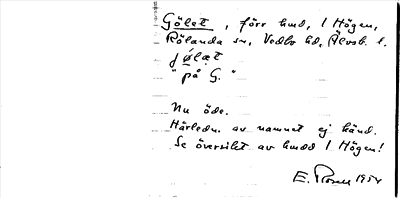 Gölet, förr hmd, I Högen,
Rölanda sn, Vedbo hd, Älvsb. l.
jölæt
"på G."
Nu öde.
Härledn. av namnet ej känd.
Se översikt av hmdd I Högen!
E. Rosell 1954